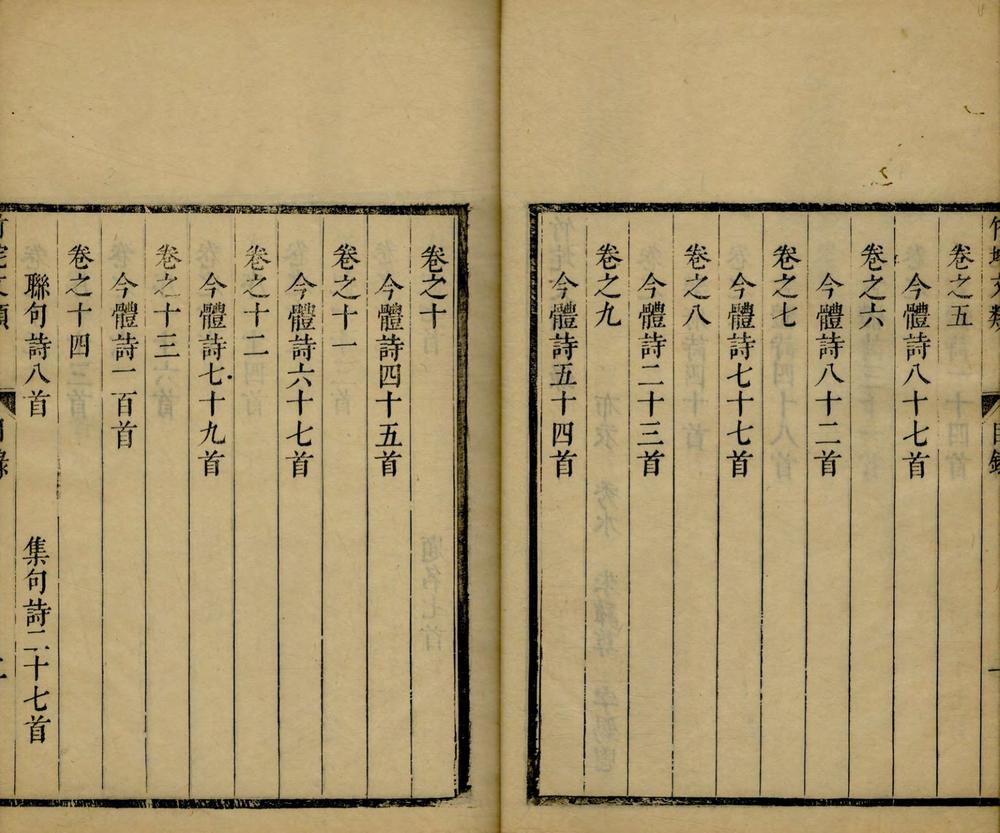 竹垞文類 目錄 一
卷之五
今體詩八十七首
卷之六
今體詩八十二首
卷之七
今體詩七十七首
卷之八
今體詩二十三首
卷之九
今體詩五十四首
卷之十
今體詩四十五首
卷之十一
今體詩六十七首
卷之十二
今體詩七十九首
卷之十三
今體詩一百首
卷之十四
聯句詩八首 集句詩二十七首
竹垞文類 目錄